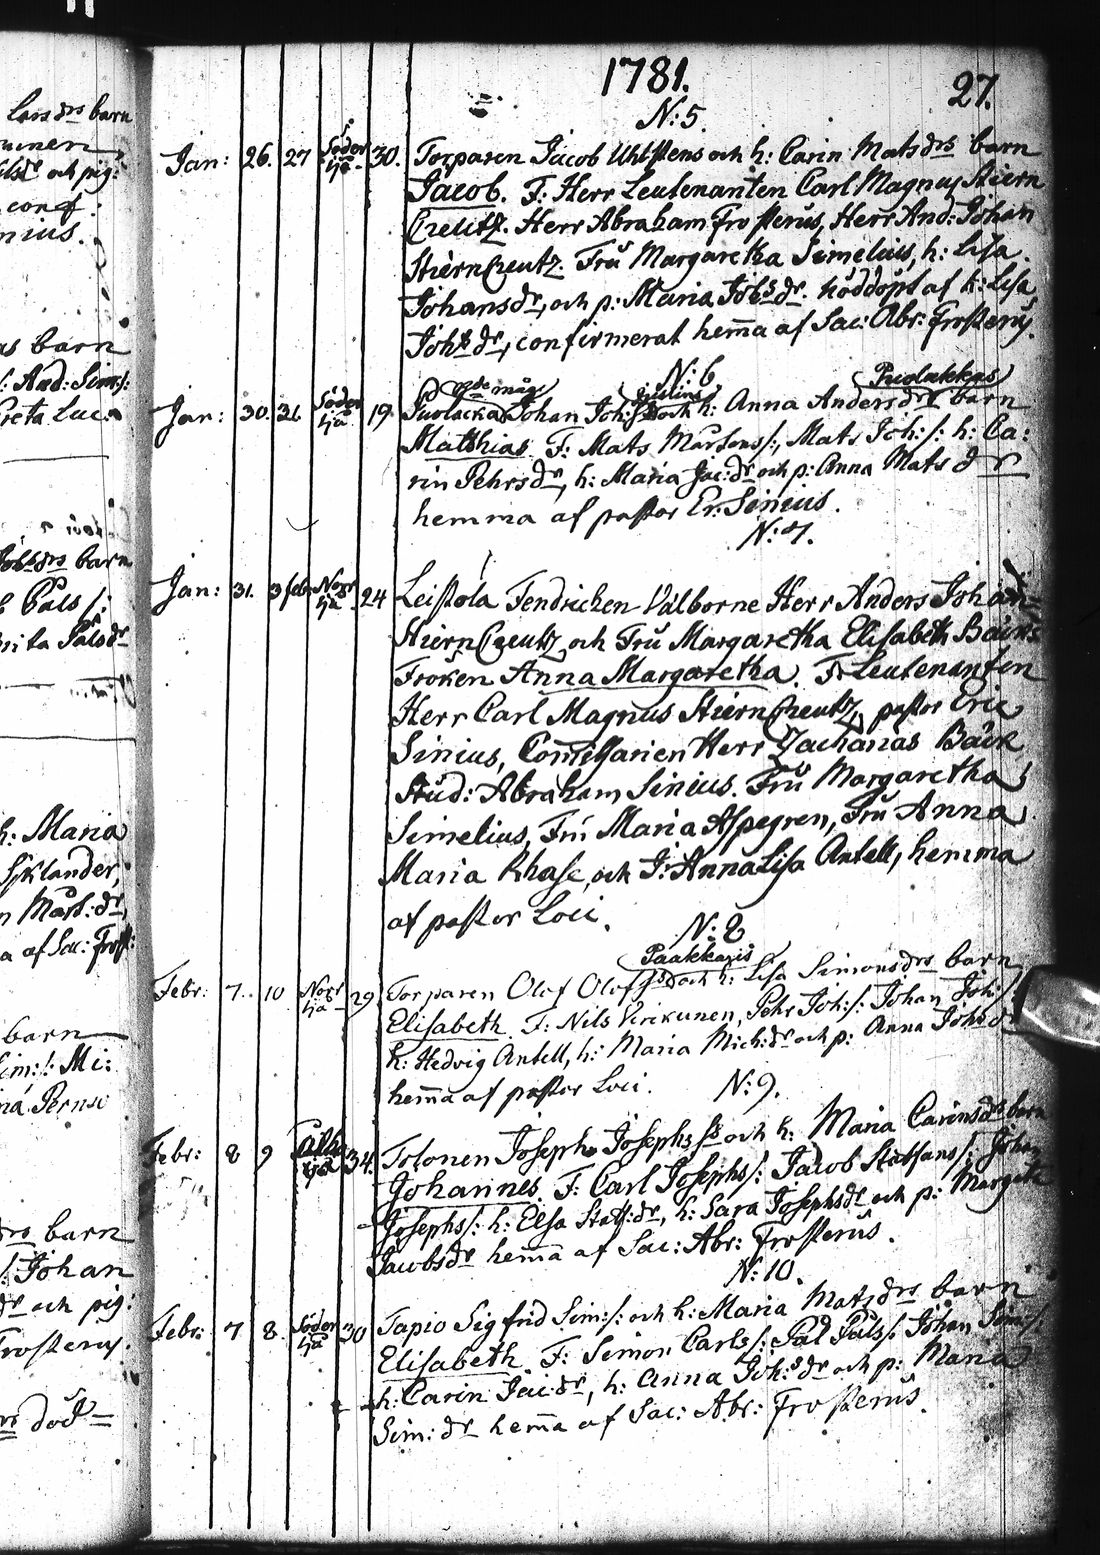 1781.
27.
N: 5.
Jan: 26. 27 Söder sja 30. Torparen Jacob Uhlstens och h: Carin Matsdrs barn
Jacob. F: Herr Leutenanten Carl Magnus Stiern
Creutz. Herr Abraham Frosterus, Herr And: Johan
StiernCreutz. Fru Margaretha Simelius, h: Lisa
Johansdr, och p: Maria Johsdr. nöddöpt af h: Lisa
Johs dr, confirmerat hem̅a af Sac: Abr: Frosterus.
N: 6
Puolakkas
Jan: 30. 31. Söder sja 19. Puolacka Johan Joh: och h: Anna Andersdrs barn
Matthias. F: Mats Martens/:, Mats Joh:/: h: Ca:
rin Pehrsdr, h: Maria Jac:dr och p: Anna Mats dr
hemma af pastor Er: Sinius.
N: 7.
Jan: 31. 3 feb: Norr sja 24 Leistola Fendricken Välborne Herr Anders Johan
StiernCreutz och Fru Margaretha Elisabeth Bäcks
Fröken Anna Margaretha. F: Leutenanten
Herr Carl Magnus StiernCreutz, pastor Eric
Sinius, Comissarien Herr Zacharias Bäck
Stud: Abraham Sinius. Fru Margaretha
Simelius, Fru Maria Aspegren, Fru Anna
Maria Rhase, och J: Anna Lisa Antell, hemma
af pastor Loci.
N: 8
Paakkaris
Febr: 7. 10 Norr sja 29 Torparen Olof Olofs och h: Lisa Simonsdrs barn
Elisabeth. F: Nils Pirikunen, Pehr Joh:/: Johan Joh:/:
h: Hedvig Antell, h: Maria Mich:dr och p: Anna Johs dr
hem̅a af pastor Loci.
N: 9.
Febr: 8 9 sja 34. Tolonen Joseph Josephs och h: Maria Carinsdrs barn
Johannes. F: Carl Josephs/: Jacob Staffans/: Johan
Josephs/: h: Elsa Staff:dr, h: Sara Josephsdr och p: Margeta
Jacobsdr hem̅a af Sac: Abr: Frosterus.
N: 10.
Febr: 7 8. Söder sja 30 Tapio Sigfrid Sim:/: och h: Maria Matsdrs barn
Elisabeth. F: Simon Carls/: Pål Påls/: Johan Sim:/:
h: Carin Jac:dr, h: Anna Joh:s dr och p: Maria
Sim: dr hem̅a af Sac: Abr: Frosterus.